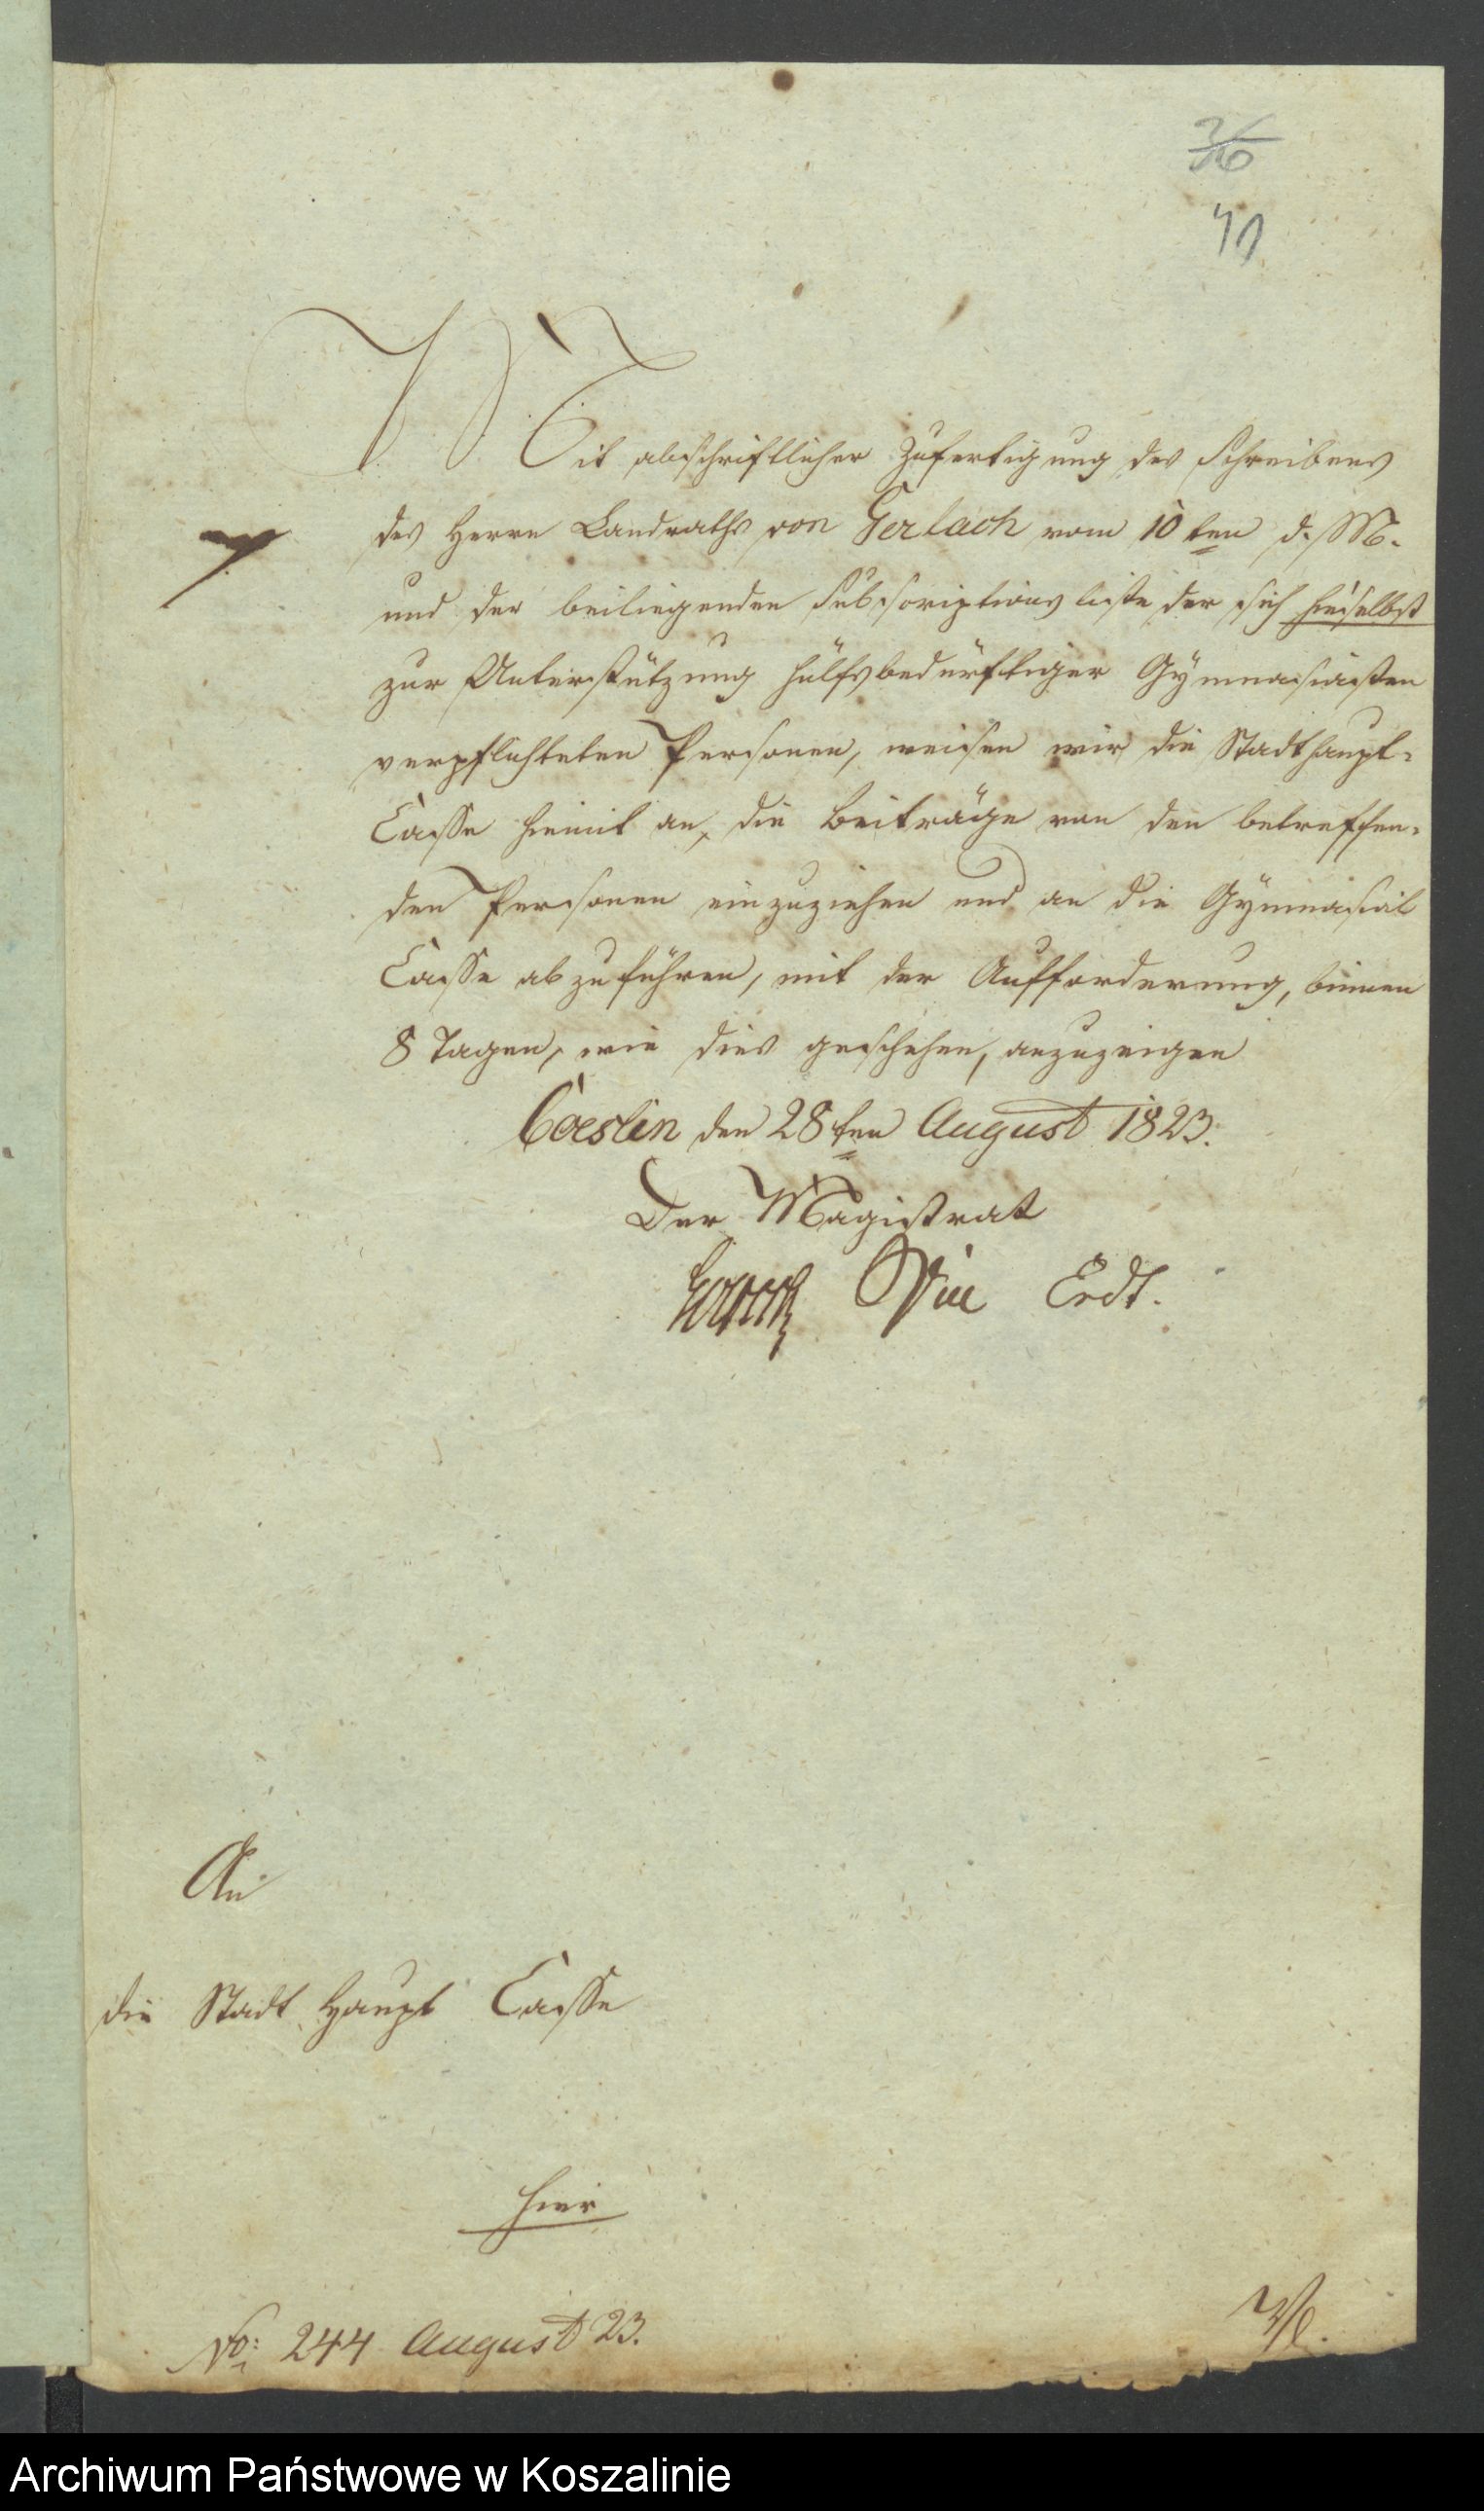 36
41
Mit abschriftlicher Zufertigung des Schreibens
des Herrn Landraths von Gerlach vom 10ten d. M.
und der beiliegenden Subscriptionsliste der sich hieselbst
zur Unterstützung hülfsbedürftiger Gymnasiasten
verpflichteten Personen, weisen wir die Stadthaupt-
Casse hiemit an, die Beiträge von den betreffen-
den Personen einzuziehen und an die Gymnasial
Casse abzuführen, mit der Aufforderung, binnen
8 Tagen, wie dies geschehen, anzuzeigen
Coeslin den 28ten August 1823.
Der Magistrat
Erdt.
An
die Stadt Haupt Casse
hier
No: 244 August 23.
Archiwum Państwowe w Koszalinie